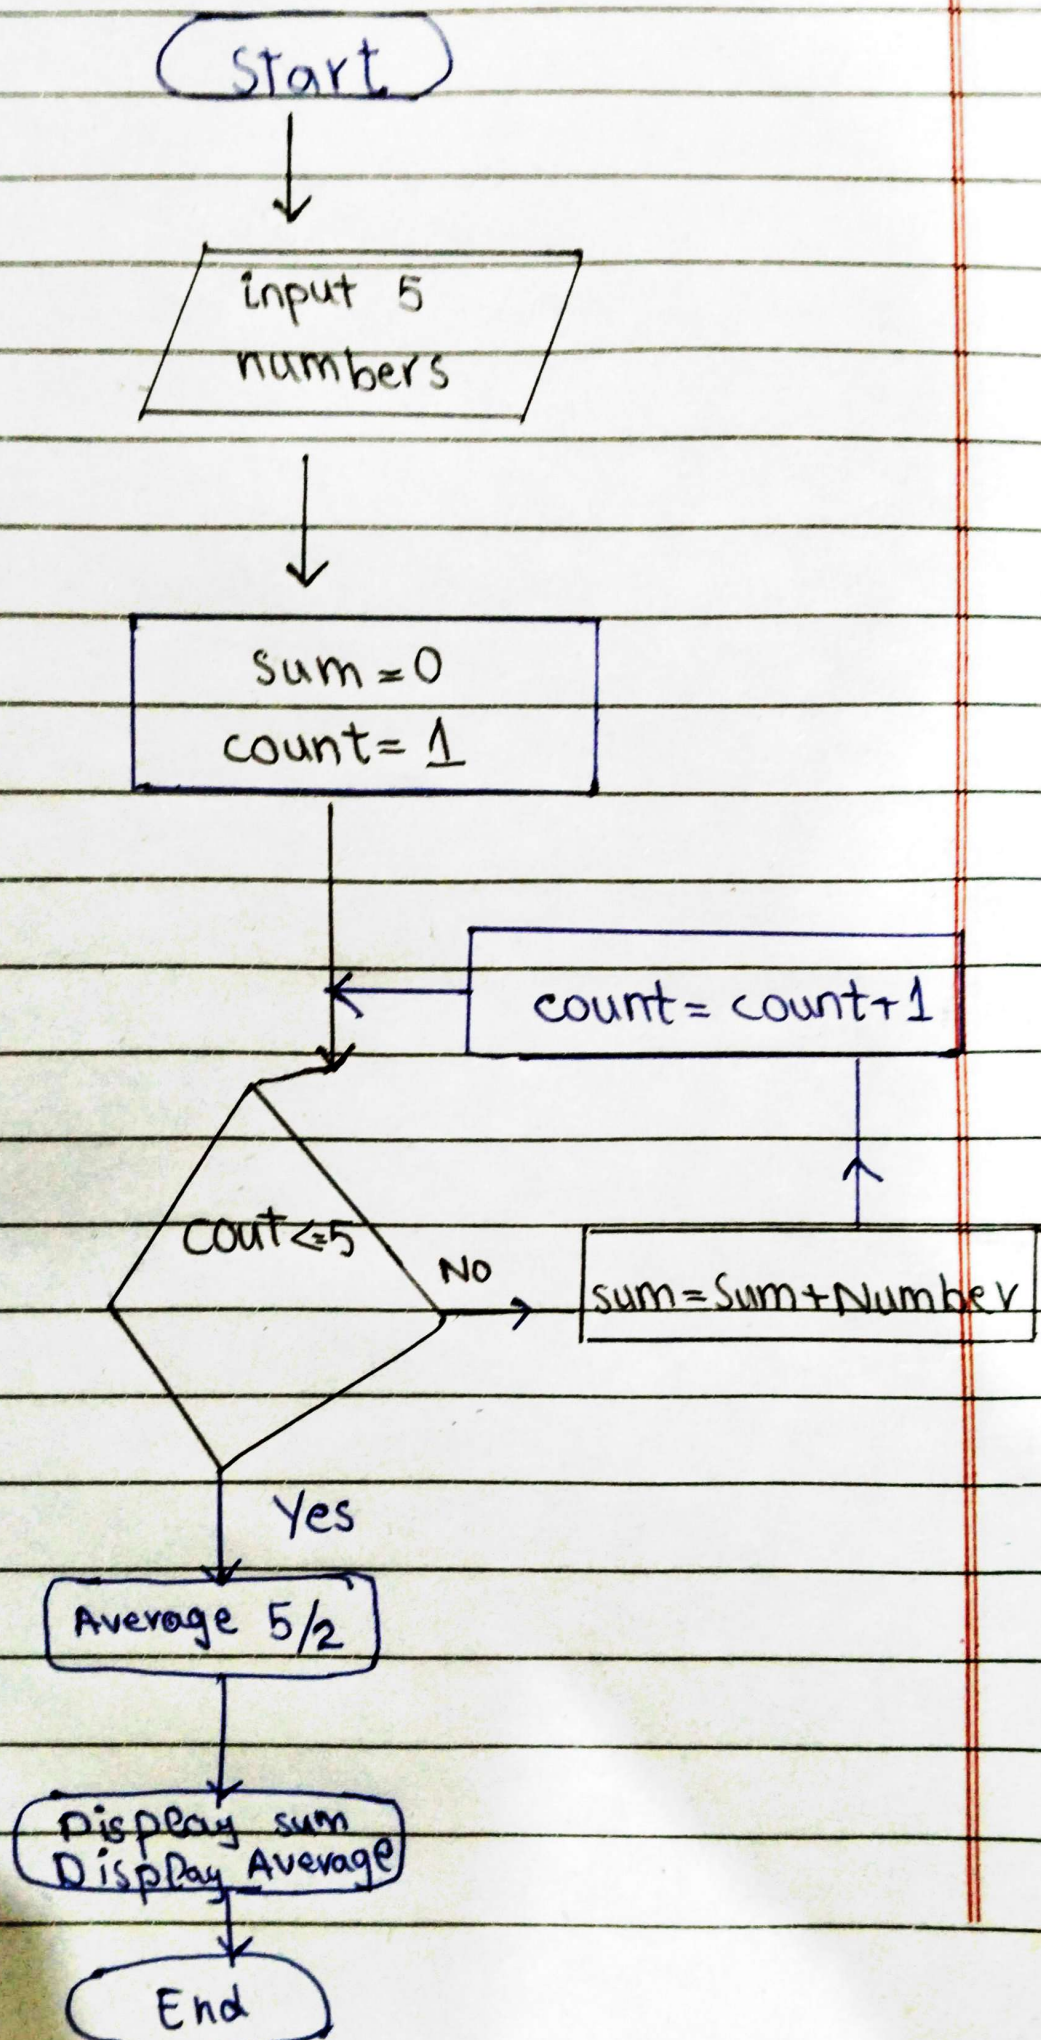 Start
input 5
numbers
sum = 0
count = 1
count = count+1
Cout <=5
NO
sum = Sum + Number
Yes
Average 5/2
Display sum
Display Average
End